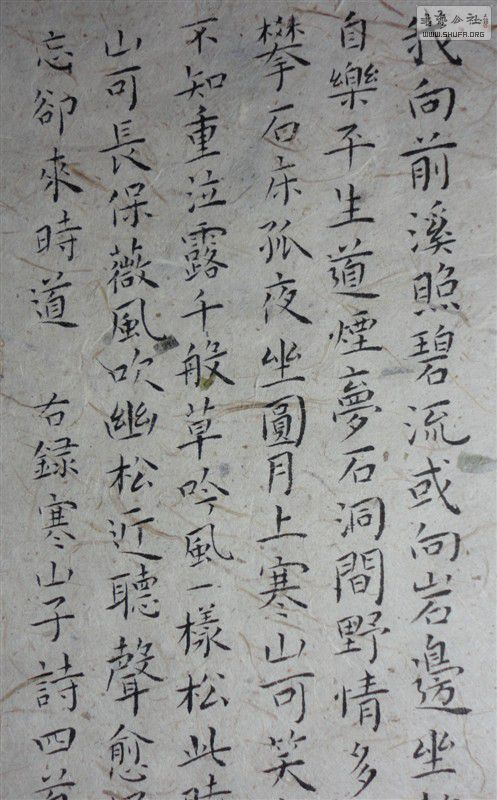 我向前溪照碧流或向岩邊坐
自樂平生道煙夢石洞間野情多
攀石床孤夜坐圓月上寒山可笑
不知重泣露千般草吟風一樣松此時
山可長保薇風吹幽松近聽聲愈
忘卻來時道 右録寒山子詩四首
公社
WWW.SHUFA.ORG